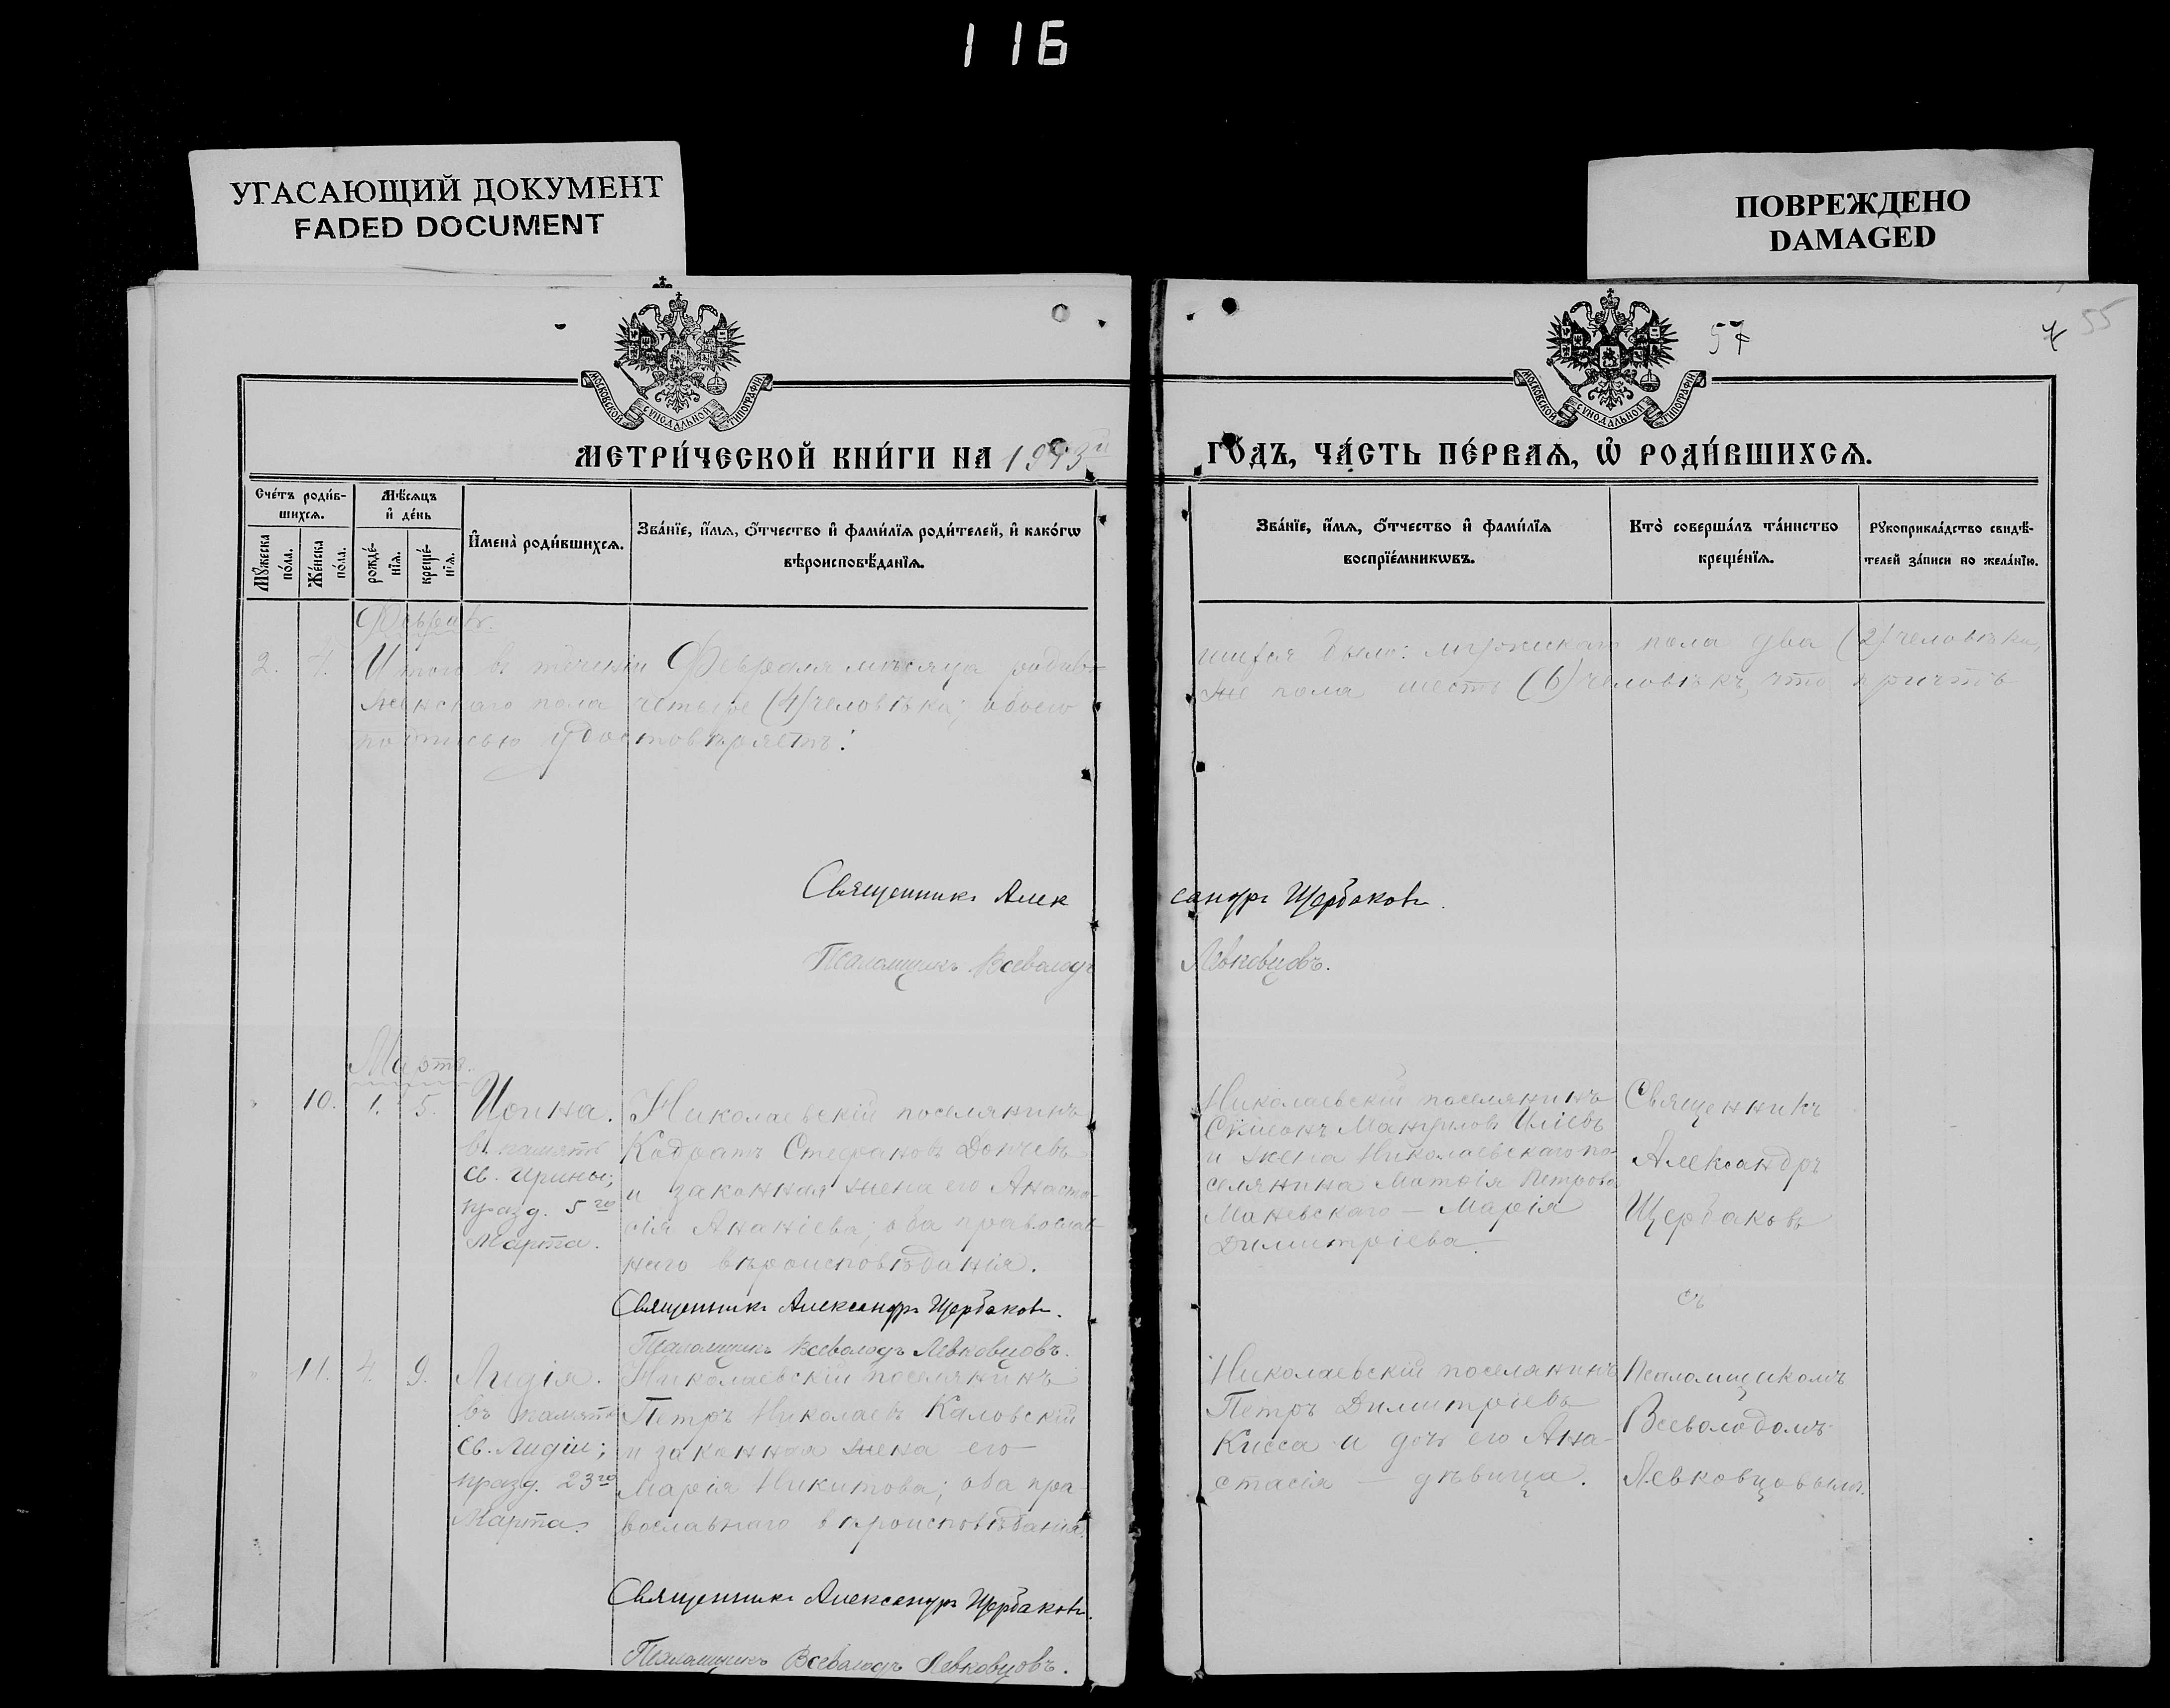 116
УГАСАЮЩИЙ ДОКУМЕНТ
FADED DOCUMENT
ПОВРЕЖДЕНО
DAMAGED
МОСКОВСКОЙ СѴНОДАЛЬНОЙ ТИПОГРАФІИ
МОСКОВСКОЙ СѴНОДАЛЬНОЙ ТИПОГРАФІИ
57
55
МЕТРИ́ЧЕСКОЙ КНИ́ГИ НА
ГО́ДЪ, ЧА́СТЬ ПЕ́РВАѦ, Ѡ҆ РОДИ́ВШИХСѦ.
Сче́тъ роди́в-
шихсѧ.
Мꙋ́жеска по́ла.
Же́нска по́ла.
Мѣ́сѧцъ
и҆ де́нь
рожде́-нїѧ.
креще́-нїѧ.
И҆мена̀ роди́вшихсѧ.
Зва́нїе, и҆́мѧ, ѻ҆́тчество и҆ фами́лїѧ роди́телей, и҆ како́гѡ
вѣроисповѣ́данїѧ.
Зва́нїе, и҆́мѧ, ѻ҆́тчество и҆ фами́лїѧ
воспрїе́мникѡвъ.
Кто̀ соверша́лъ та́инство
креще́нїѧ.
Рꙋкоприкла́дство свидѣ́-
телей за́писи по жела́нїю.
2. 4. Итого въ теченіи Февраля мѣсяца родив-
шихся было: мужскаго пола два (2) человѣка,
женскаго пола четыре (4) человѣка; обоего
же пола шесть (6) человѣкъ, что причтъ
подписью удостовѣряетъ:
Священникъ Александръ Щербаковъ.
Псаломщикъ Всеволодъ Левковцовъ.
Мартъ.
10. 1. 5.
Ирина.
въ память
св. Ирины;
празд. 5го
Марта.
Николаевскій поселянинъ
Кодратъ Стефановъ Дончевъ
и законная жена его Анаста-
сія Ананіева; оба православ-
наго вѣроисповѣданія.
Николаевскій поселянинъ
Сѵмеонъ Мануиловъ Иліевъ
и жена Николаевскаго по-
селянина Матѳія Петрова
Маневскаго — Марія
Димитріева.
Священникъ
Александръ
Щербаковъ
съ
Священникъ Александръ Щербаковъ.
Псаломщикъ Всеволодъ Левковцовъ.
11. 4. 9.
Лидія.
въ память
св. Лидіи;
празд. 23го
Марта.
Николаевскій поселянинъ
Петръ Николаевъ Каловскій
и законная жена его
Марія Никитова; оба пра-
вославнаго вѣроисповѣданія.
Николаевскій поселянинъ
Петръ Димитріевъ
Кисса и дочь его Ана-
стасія — дѣвица.
Псаломщикомъ
Всеволодомъ
Левковцовымъ.
Священникъ Александръ Щербаковъ.
Псаломщикъ Всеволодъ Левковцовъ.